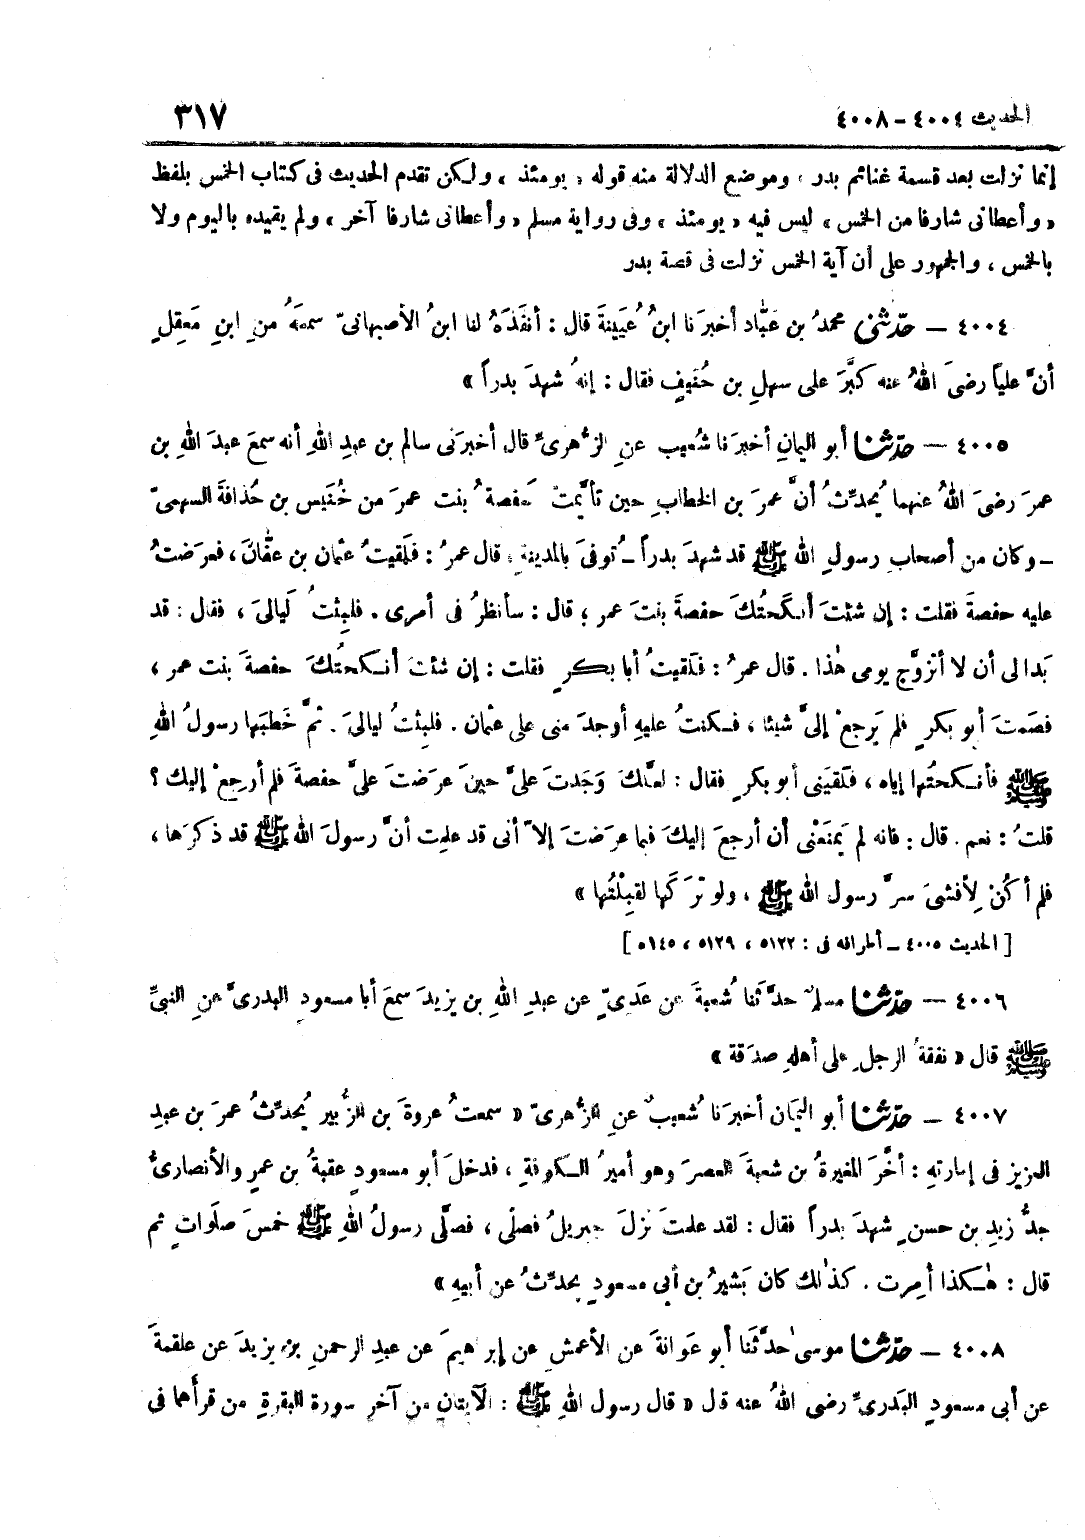 الحديث ٤٠٠٤ – ٤٠٠٨ ٣١٧
إنما نزلت بعد قسمة غنائم بدر ، وموضع الدلالة منه قوله « يومئذ ، ولكن تقدم الحديث فى كتاب الخمس بلفظ
« وأعطانى شارفا من الخمس » ليس فيه « يومئذ » وفى رواية مسلم « وأعطانى شارفا آخر » ولم يقيده باليوم ولا
بالخمس ، والجمهور على أن آية الخمس نزلت فى قصة بدر
٤٠٠٤ – حدّثنى محمدُ بن عَبَّاد أخبرَنا ابنُ عُيَينةَ قال : أنفَذَهُ لنا ابنُ الأصبهانىّ سمعَهُ منِ ابنِ مَعقِلٍ
أنَّ علياً رضىَ اللهُ عنه كبَّرَ على سهلِ بن حُنَيفٍ فقال : إنهُ شهدَ بدراً »
٤٠٠٥ – حدّثنا أبو اليمانِ أخبرَنا شُعيب عنِ الزُّهرىِّ قال أخبرَنى سالم بن عبدِ اللهِ أنه سمعَ عبدَ اللهِ بن
عمرَ رضىَ اللهُ عنهما يُحدِّثُ أنَّ عمرَ بن الخطابِ حين تأيَّمتْ حفصةُ بنت عمرَ من خُنَيس بن حُذافةَ السهمىّ
– وكان من أصحابِ رسولِ الله ﷺ قد شهدَ بدراً – تُوفىَ بالمدينةِ ، قال عمرُ : فلَقيتُ عثمان بن عفّانَ ، فعرَضتُ
عليه حفصةَ فقلت : إن شئتَ أنكَحتُكَ حفصةَ بنتَ عمر ، قال : سأنظرُ فى أمرى . فلبِثتُ لَيالىَ ، فقال : قد
بَدا لى أن لا أتزوَّج يومى هٰذا . قال عمرُ : فلَقيتُ أبا بكرٍ فقلت : إن شئتَ أنكحتُكَ حفصةَ بنت عمر ،
فصَمتَ أبو بكرٍ فلم يَرجعْ إلىَّ شيئا ، فكنتُ عليهِ أوجدَ منى على عثمان . فلبثتُ ليالىَ . ثمَّ خَطبَها رسولُ اللهِ
ﷺ فأنكحتُها إياه ، فلقيَنى أبو بكرٍ فقال : لعلَّكَ وَجَدتَ علىَّ حينَ عرَضتَ علىَّ حفصةَ فلم أرجِعْ إليك ؟
قلتُ : نعم . قال : فانه لم يَمنَعْنى أن أرجعَ إليكَ فيما عرَضتَ إلاّ أنى قد علمت أنَّ رسولَ اللهِ ﷺ قد ذكرَها ،
فلم أكُنْ لِأفشىَ سرَّ رسول الله ﷺ ، ولو ترَكَها لقبِلْتُها »
[ الحديث ٤٠٠٥ – أطرافه فى : ٥١٢٢ ، ٥١٢٩ ، ٥١٤٥ ]
٤٠٠٦ – حدّثنا مسلمٌ حدَّثَنا شُعبةَ عن عَدىٍّ عن عبدِ اللهِ بن يزيدَ سمعَ أبا مسعودٍ البدرىَّ عنِ النبىِّ
ﷺ قال « نفقةُ الرجلِ على أهلهِ صدَقة »
٤٠٠٧ – حدّثنا أبو اليَمانِ أخبرَنا شُعيبٌ عنِ الزُّهرىّ « سمعتُ عروةَ بن الزُّبير يُحدِّثُ عمرَ بن عبدِ
العزيز فى إمارتهِ : أخَّرَ المغيرةُ بن شعبةَ العصرَ وهو أميرُ الكوفةِ ، فدخلَ أبو مسعودٍ عقبةُ بن عمرٍو الأنصارىُّ
جدُّ زيدِ بن حسنٍ شهدَ بدراً فقال : لقد علمتَ نزلَ جبريلُ فصلّى ، فصلّى رسولُ اللهِ ﷺ خمسَ صلَواتٍ ثم
قال : هٰكذا أُمِرت . كذٰلك كان بَشيرُ بن أبى مسعودٍ يحدِّثُ عن أبيهِ »
٤٠٠٨ – حدّثنا موسىٰ حدَّثَنا أبو عَوانةَ عن الأعمشِ عن إبراهيمَ عن عبدِ الرحمنِ بن يزيدَ عن علقمةَ
عن أبى مسعودٍ البَدرىِّ رضى اللهُ عنه قال « قال رسول اللهِ ﷺ : الآيتانِ من آخرِ سورة البقرةِ من قرأَهما فى